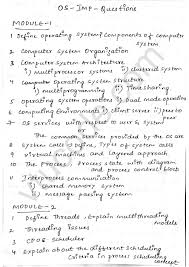 OS-Imp-Questions
MODULE-1
1 Define operating system? Components of computer
system
2 Computer System Organization
3 Computer System Architecture
i) multiprocessor systems ii) clustered system
4 Computer operating system structure
i) multiprogramming ii) Time sharing
5 operating system operations i) Dual mode operating
6 Computing Environments i) client server ii) peer to
7 OS services with respect to user & system
The common services provided by the os are
8 System calls & Define, types of system calls
9 Virtual machine and layered approach
10 The Process, Process state with diagram
and process control block
11 Interprocess communication
i) shared memory system
ii) message passing system
MODULE-2
1 Define Threads, Explain multithreading
models
2 Threading Issues
3 CPU scheduler
4 Explain about the different scheduling
criteria in process scheduling